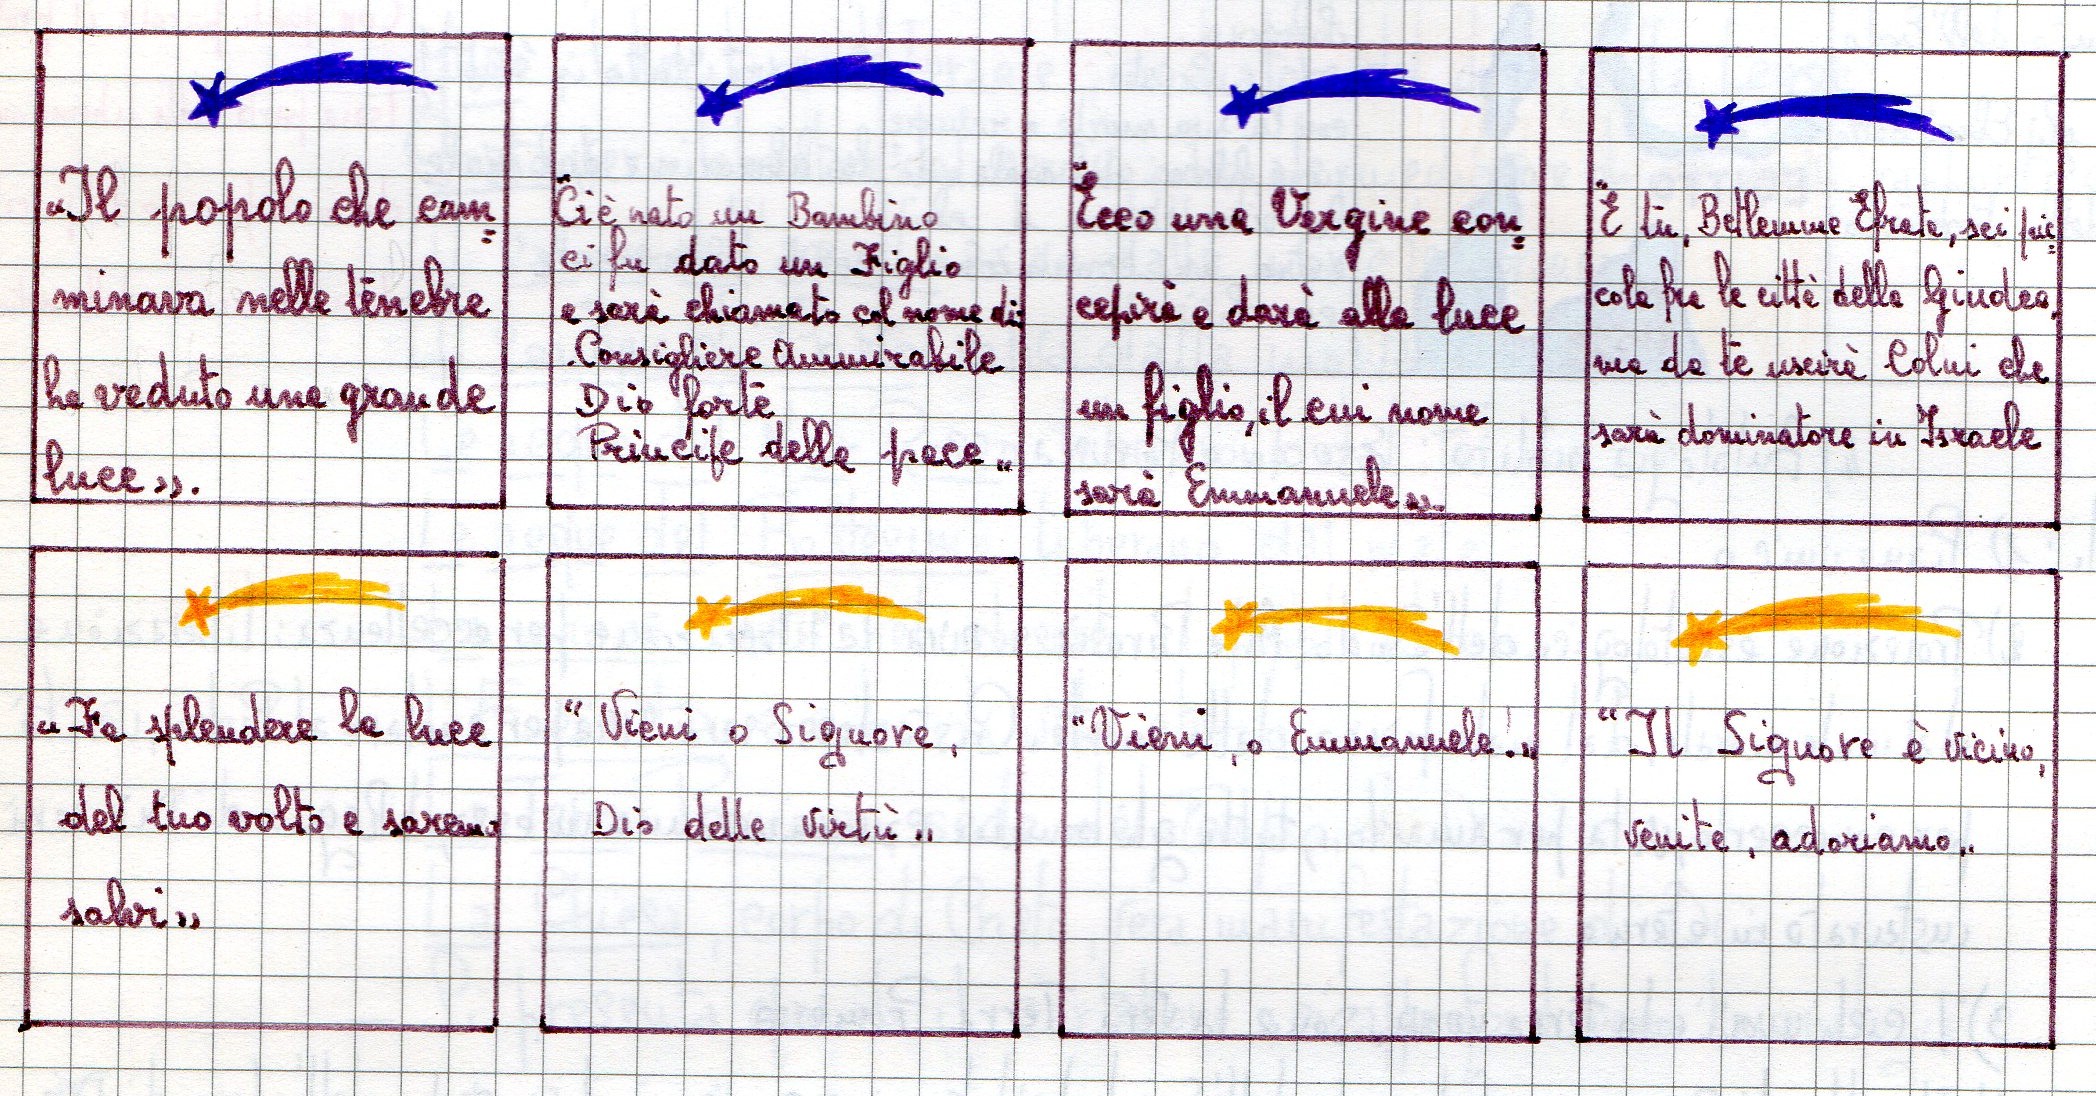 „Il popolo che cam=
minava nelle tenebre
ha veduto una grande
luce».
"Ci è nato un Bambino
ci fu dato un Figlio
e sarà chiamato col nome di:
Consigliere Ammirabile
Dio forte
Principe della pace„
"Ecco una Vergine con=
cepirà e darà alla luce
un figlio, il cui nome
sarà Emmanuele».
"E tu, Betlemme Efrata, sei pic=
cola fra le città della Giudea,
ma da te uscirà Colui che
sarà dominatore in Israele
„Fa splendere la luce
del tuo volto e saremo
salvi»
"Vieni o Signore,
Dio delle virtù„
"Vieni, o Emmanuele!„
"Il Signore è vicino,
venite, adoriamo„